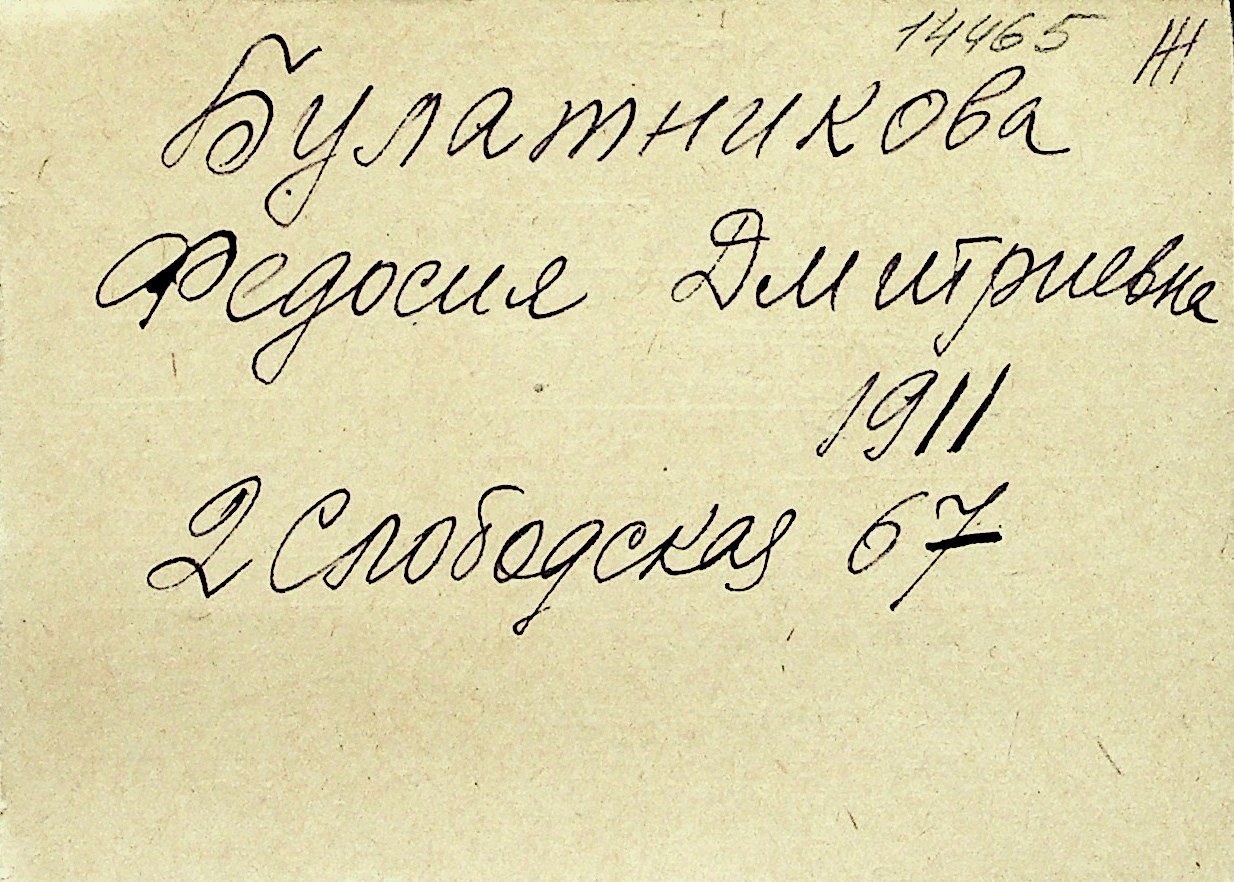 14465 Ж
Булатникова
Федосия Дмитриевна
1911
2 Слободская 67